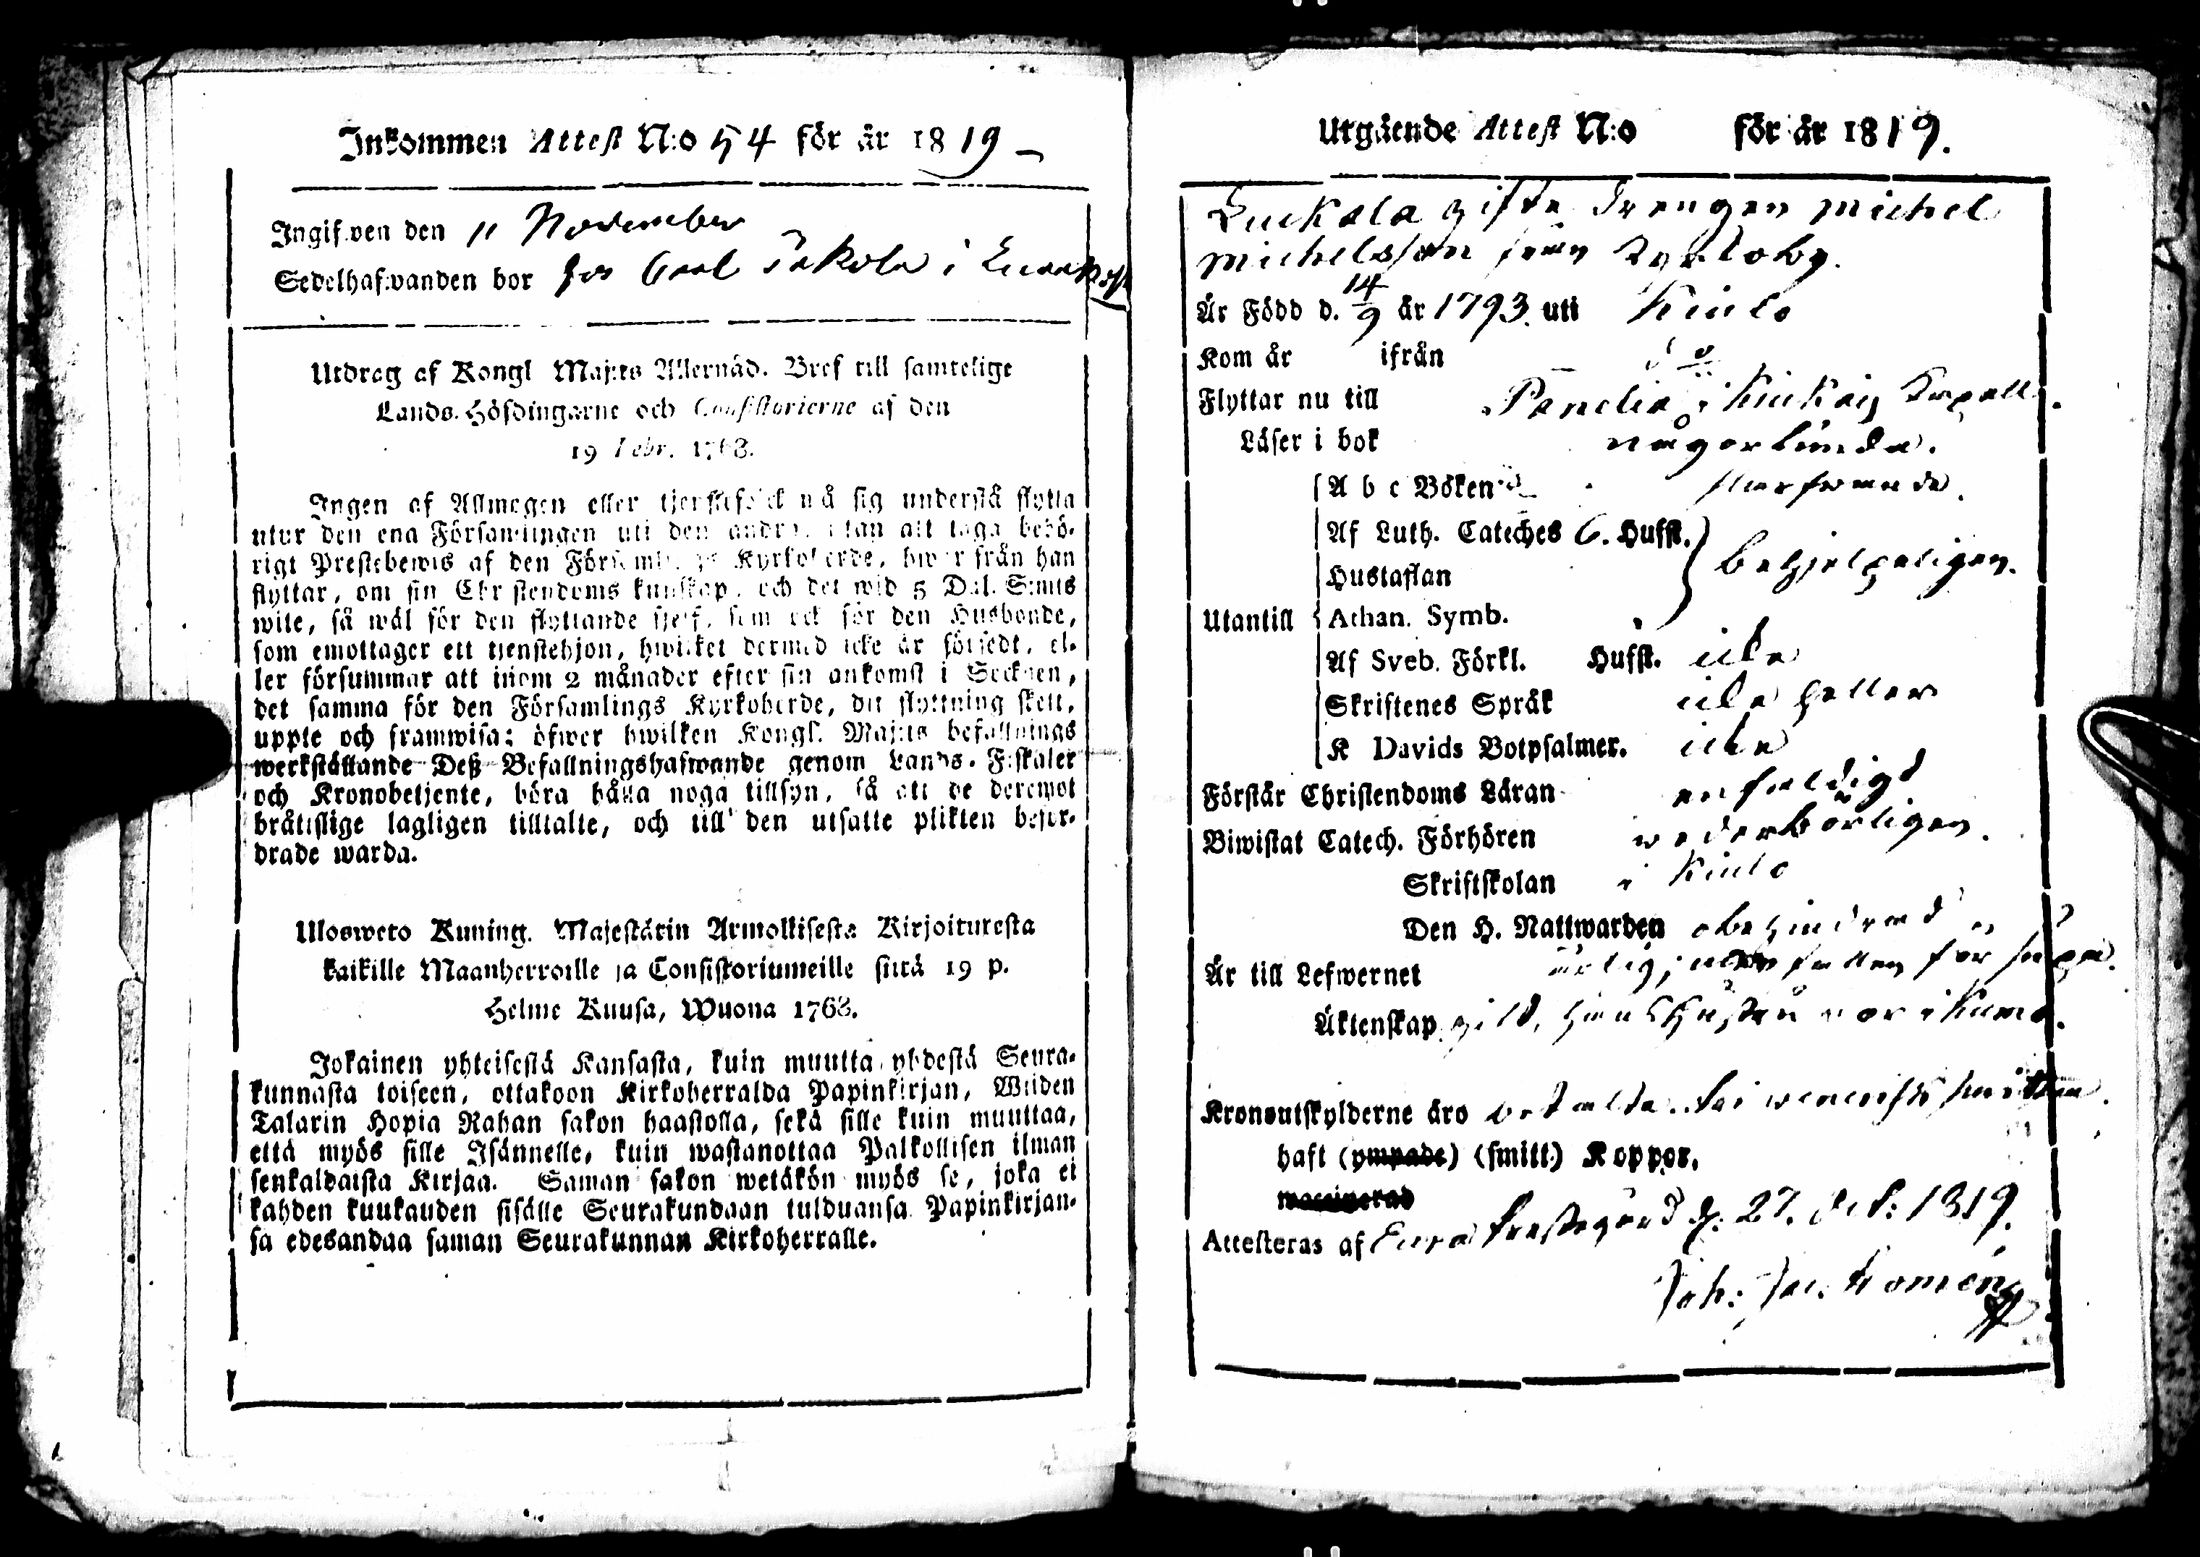 Inkommen Attest N:o 54 för år 1819
Ingifwen den 11 November
Sedelhafwanden bor hos Carl i
Utdrag af Kongl Maj:ts Allernåd. Bref till samtelige
Lands-Höfdingarne och Consistorierne af den
19 Febr. 1768.
Ingen af Allmogen eller tjenstefolck må sig understå flytta
utur den ena Församlingen uti den andra, utan att taga behö-
rigt Prestebewis af den Församlings Kyrkoherde, hwar från han
flyttar, om sin Christendoms kunskap, och det wid 5 Dal. S:mts
wite, så wäl för den flyttande sjelf, som ock för den Husbonde,
som emottager ett tjenstehjon, hwilket dermed icke är försedt, el-
ler försummar att inom 2 månader efter sin ankomst i Socknen,
det samma för den Församlings Kyrkoherde, dit flyttning skett,
uppte och framwisa; öfwer hwilken Kongl. Maj:ts befallnings
werkställande Deß Befallningshafwande genom Lands-Fiskaler
och Kronobetjente, böra hålla noga tillsyn, så att de deremot
bråtislige lagligen tilltalte, och till den utsatte plikten befor-
drade warda.
Ulosweto Kuning. Majestätin Armollisesta Kirjoituresta
kaikille Maanherroille ja Consistoriumeille siitä 19 p.
Helme Kuusa, Wuona 1768.
Jokainen yhteisestä Kansasta, kuin muutta yhdestä Seura-
kunnasta toiseen, ottakoon Kirkoherralda Papinkirjan, Wiiden
Talarin Hopia Rahan sakon haastolla, sekä sille kuin muuttaa,
että myös sille Isännelle, kuin wastanottaa Palkollisen ilman
senkaldaista Kirjaa. Saman sakon wetäkön myös se, joka ei
kahden kuukauden sisälle Seurakundaan tulduansa Papinkirjan-
sa edesandaa saman Seurakunnan Kirkoherralle.
Utgående Attest N:o för år 1819.
gifta Drengen Michel
Michelsson från
Är Född d. 14/9 år 1793. uti Kiulo
Kom år ifrån
Flyttar nu till Panelia i Kiukais Capell.
Läser i bok någorlunda.
Utantill
A b c Boken
Af Luth. Cateches 6. Hufst.
Hustaflan behjelpeligen.
Athan. Symb.
Af Sveb. Förkl. Hufst. icke
Skriftenes Språk icke heller
K Davids Botpsalmer. icke
Förstår Christendoms Läran enfaldigt
Biwistat Catech. Förhören wederbörligen.
Skriftskolan i Kiulo
Den H. Nattwarden obehindrad
Är till Lefwernet ärlig;
Äktenskap gift, hans Hustru
Kronoutskylderne äro betalta.
haft (ympade) (smitt) Koppor.
waccinerad
Attesteras af Eura Prestegård d. 27. Oct: 1819.
Joh: Jac.